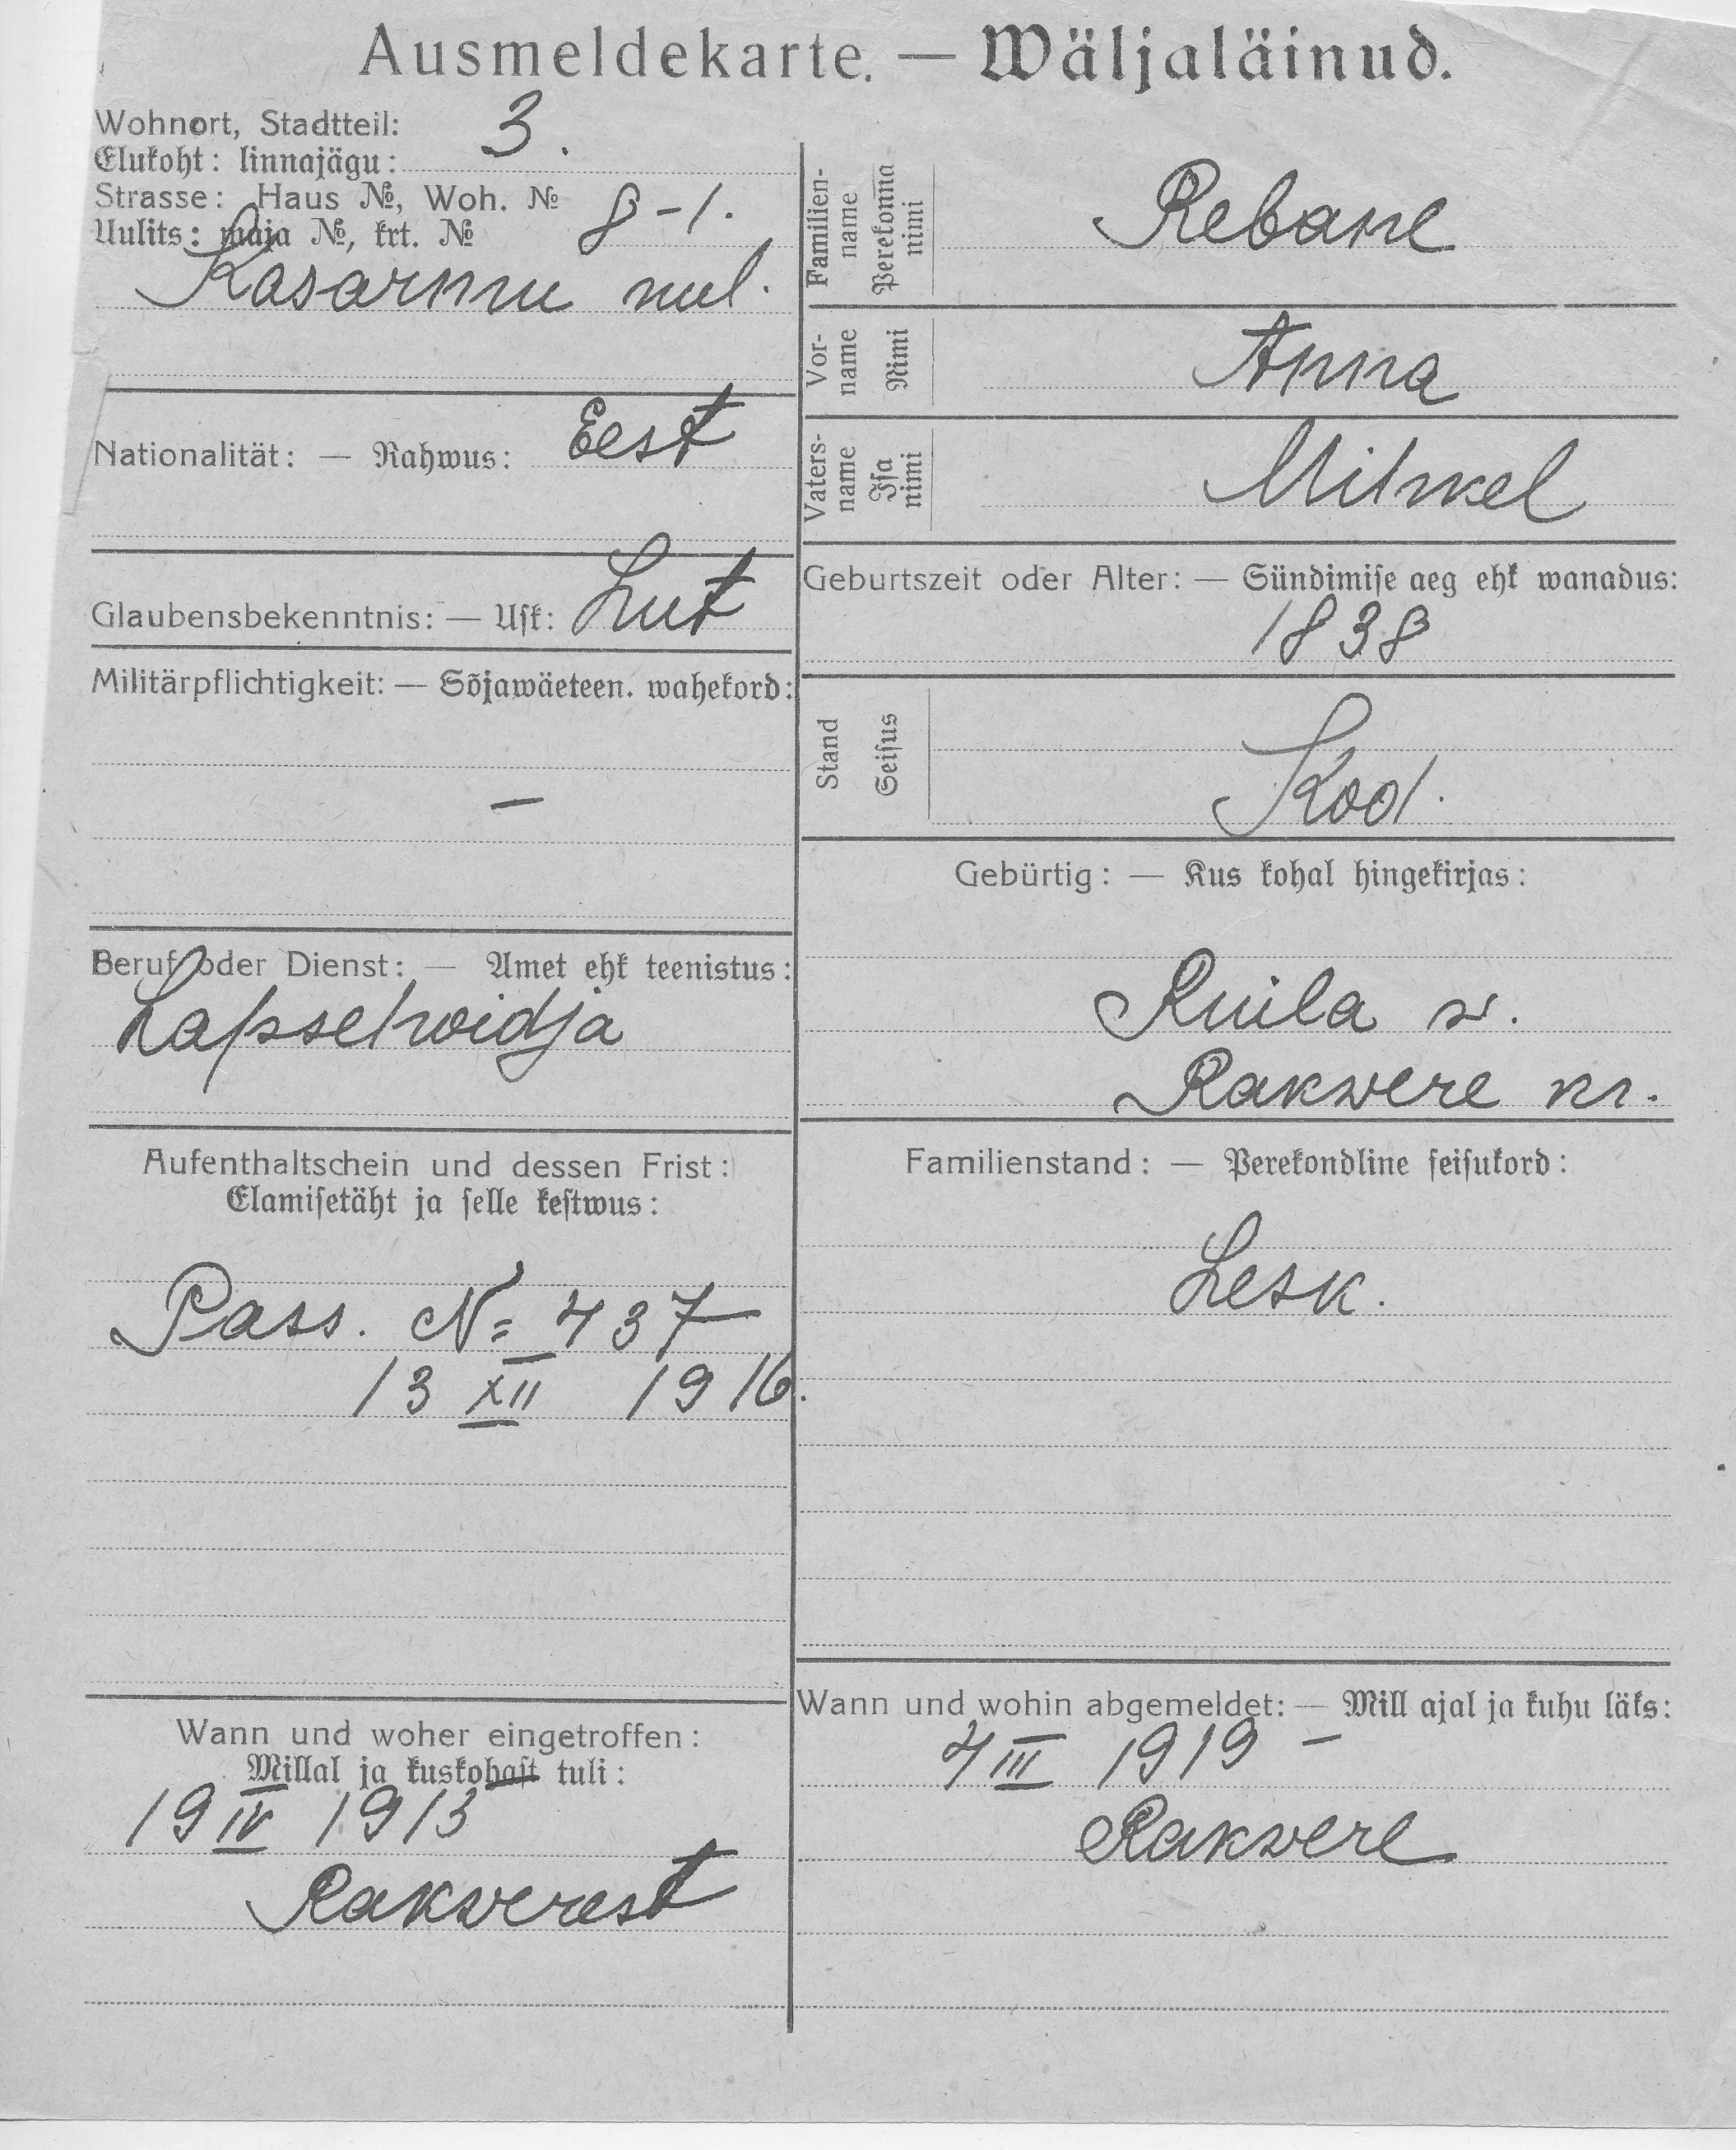 Ausmeldekarte. — Wäljaläinud.
Wohnort, Stadtteil:
Elukoht: linnajägu: 3.
Strasse: Haus №, Woh. №
Uulits: maja №, krt. № 8-1.
Kasarmu uul.
Nationalität: — Rahwus: Eest
Glaubensbekenntnis: — Usk: Lut
Militärpflichtigkeit: — Sõjawäeteen. wahekord:
—
Beruf oder Dienst: — Amet ehk teenistus:
Lapsehoidja
Aufenthaltschein und dessen Frist:
Elamisetäht ja selle kestwus:
Pass. № 437
13 XII 1916.
Wann und woher eingetroffen:
Millal ja kuskohast tuli:
19 IV 1913
Rakverest
Familien-
name
Perekonna
nimi
Rebane
Vor-
name
Nimi
Anna
Vaters-
name
Isa
nimi
Mihkel
Geburtszeit oder Alter: — Sündimise aeg ehk wanadus:
1838
Stand
Seisus
Kod.
Gebürtig: — Kus kohal hingekirjas:
Ruila v.
Rakvere kr.
Familienstand: — Perekondline seisukord:
Lesk.
Wann und wohin abgemeldet: — Mill ajal ja kuhu läks:
4 III 1919 —
Rakvere